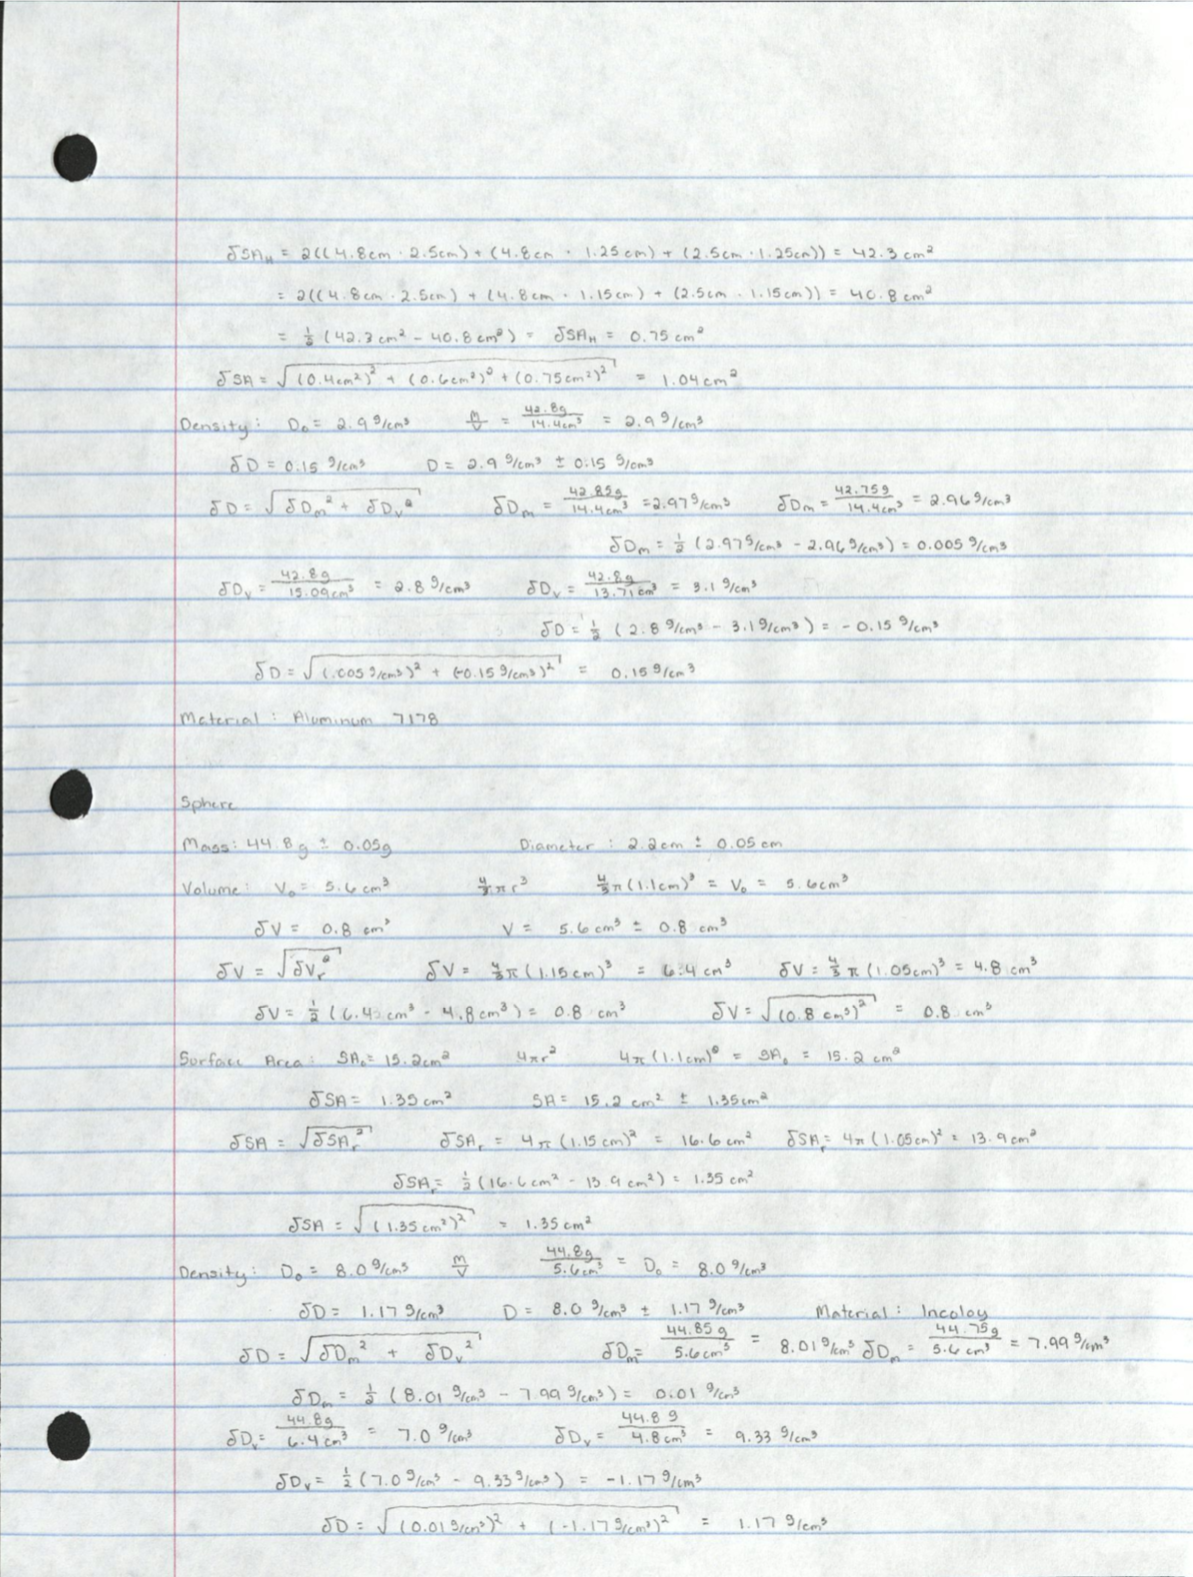 δSA_H = 2((4.8cm · 2.5cm) + (4.8cm · 1.25cm) + (2.5cm · 1.25cm)) = 42.3 cm²
= 2((4.8cm · 2.5cm) + (4.8cm · 1.15cm) + (2.5cm · 1.15cm)) = 40.8 cm²
= ½ (42.3 cm² - 40.8 cm²) = δSA_H = 0.75 cm²
δSA = √((0.4cm²)² + (0.6cm²)² + (0.75cm²)²) = 1.04cm²
Density: D₀ = 2.9 g/cm³ m/V = 42.8g/14.4cm³ = 2.9 g/cm³
δD = 0.15 g/cm³ D = 2.9 g/cm³ ± 0.15 g/cm³
δD = √(δD_m² + δD_v²) δD_m = 42.85g/14.4cm³ = 2.97 g/cm³ δD_m = 42.75g/14.4cm³ = 2.96 g/cm³
δD_m = ½ (2.97 g/cm³ - 2.96 g/cm³) = 0.005 g/cm³
δD_v = 42.8g/15.09cm³ = 2.8 g/cm³ δD_v = 42.8g/13.71cm³ = 3.1 g/cm³
δD = ½ (2.8 g/cm³ - 3.1 g/cm³) = -0.15 g/cm³
δD = √((.005 g/cm³)² + (-0.15 g/cm³)²) = 0.15 g/cm³
Material: Aluminum 7178
Sphere
Mass: 44.8g ± 0.05g Diameter: 2.2cm ± 0.05 cm
Volume: V₀ = 5.6 cm³ 4/3πr³ 4/3π(1.1cm)³ = V₀ = 5.6cm³
δV = 0.8 cm³ V = 5.6 cm³ ± 0.8 cm³
δV = √(δV_r²) δV = 4/3π(1.15cm)³ = 6.4 cm³ δV = 4/3π(1.05cm)³ = 4.8 cm³
δV = ½ (6.4 cm³ - 4.8cm³) = 0.8 cm³ δV = √((0.8 cm³)²) = 0.8 cm³
Surface Area: SA₀ = 15.2cm² 4πr² 4π(1.1cm)² = SA₀ = 15.2 cm²
δSA = 1.35 cm² SA = 15.2 cm² ± 1.35cm²
δSA = √(δSA_r²) δSA_r = 4π(1.15cm)² = 16.6 cm² δSA_r = 4π(1.05cm)² = 13.9cm²
δSA_r = ½(16.6cm² - 13.9cm²) = 1.35 cm²
δSA = √((1.35 cm²)²) = 1.35 cm²
Density: D₀ = 8.0 g/cm³ m/V 44.8g/5.6cm³ = D₀ = 8.0 g/cm³
δD = 1.17 g/cm³ D = 8.0 g/cm³ ± 1.17 g/cm³ Material: Incoloy
δD = √(δD_m² + δD_v²) δD_m = 44.85g/5.6cm³ = 8.01 g/cm³ δD_m = 44.75g/5.6cm³ = 7.99 g/cm³
δD_m = ½ (8.01 g/cm³ - 7.99 g/cm³) = 0.01 g/cm³
δD_v = 44.8g/6.4cm³ = 7.0 g/cm³ δD_v = 44.8g/4.8cm³ = 9.33 g/cm³
δD_v = ½ (7.0 g/cm³ - 9.33 g/cm³) = -1.17 g/cm³
δD = √((0.01 g/cm³)² + (-1.17 g/cm³)²) = 1.17 g/cm³